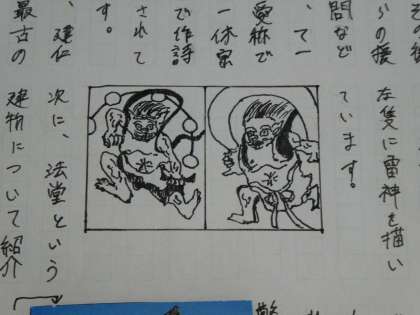 その後
らの援
問など
、て一
愛称で
一休宗
で作詩
されて
す。
、建仁
最古の
左隻に雷神を描い
ています。
次に、法堂という
建物について紹介